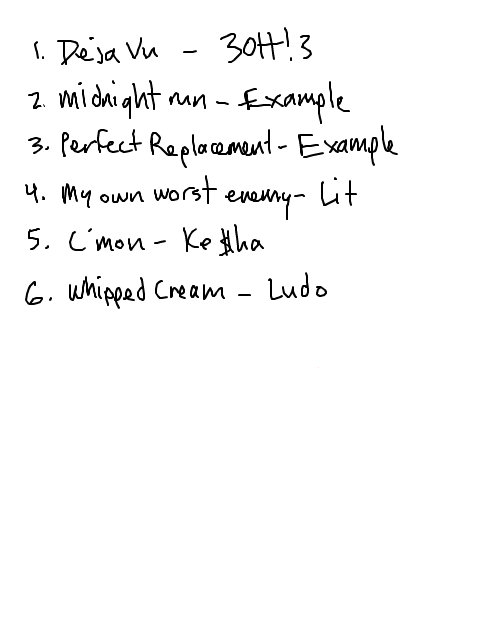 1. Deja Vu - 3OH!3
2. Midnight run - Example
3. Perfect Replacement - Example
4. My own worst enemy - Lit
5. C'mon - Ke$ha
6. Whipped Cream - Ludo